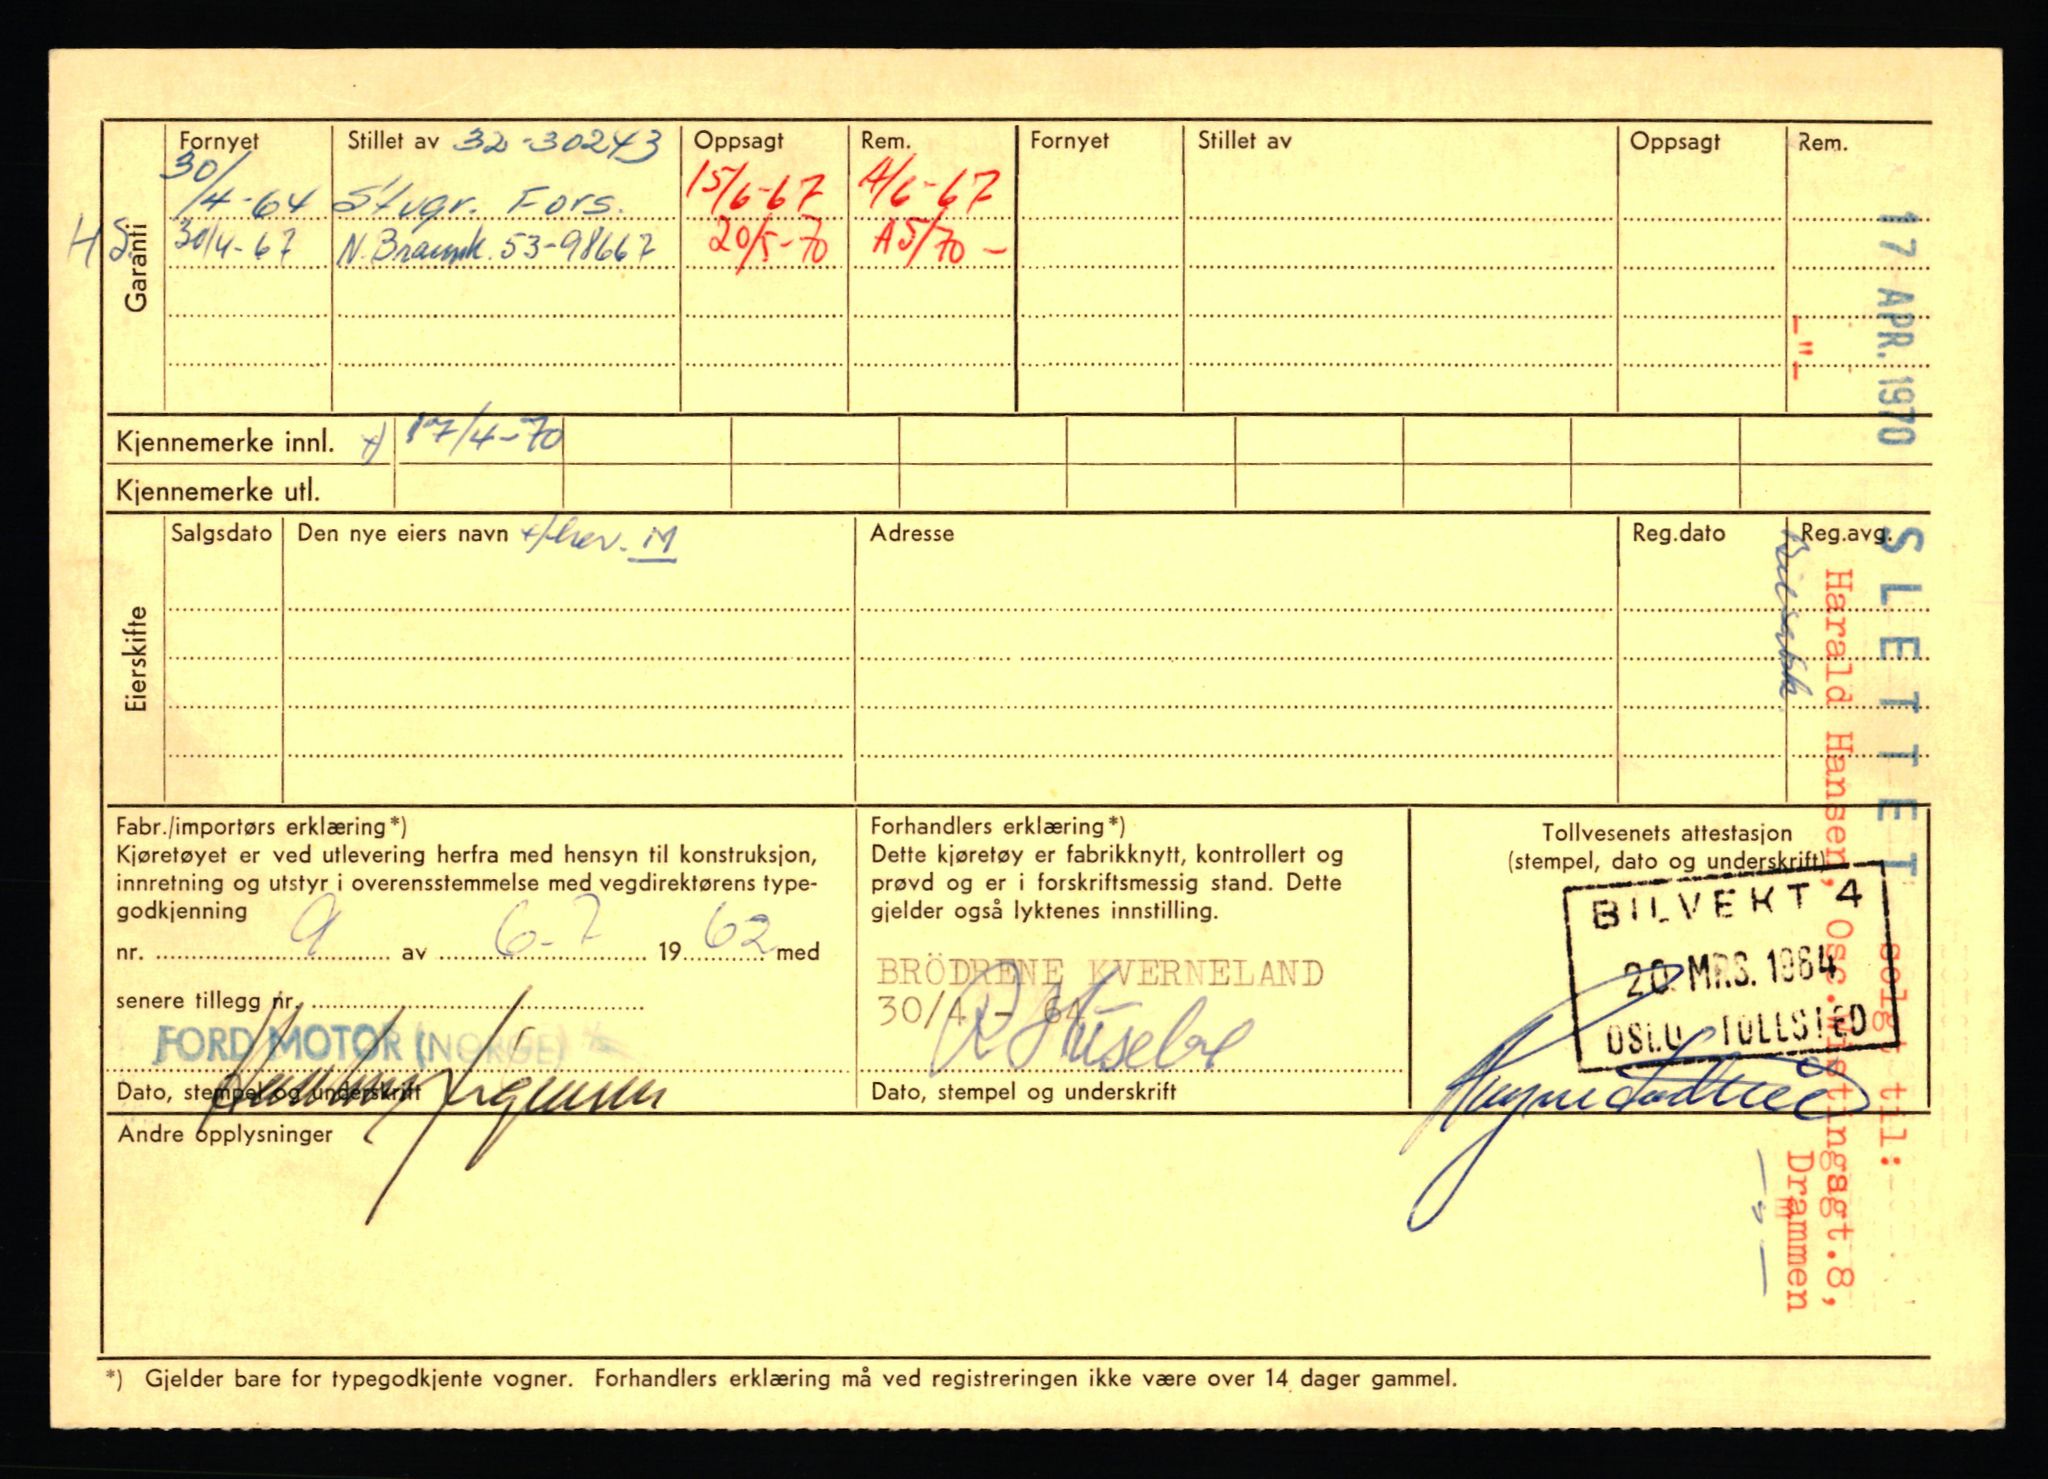 Garanti
Fornyet Stillet av 32-30243 Oppsagt Rem. Fornyet Stillet av Oppsagt Rem.
30/4-64 Stvgr. Fors. 15/6-67 A/6-67
H S. 30/4-67 N. Braunk. 53-98667 20/5-70 A5/70 -
Kjennemerke innl. x) 17/4-70
Kjennemerke utl.
Eierskifte
Salgsdato Den nye eiers navn M Adresse Reg.dato Reg.avg.
Fabr./importørs erklæring*)
Kjøretøyet er ved utlevering herfra med hensyn til konstruksjon,
innretning og utstyr i overensstemmelse med vegdirektørens type-
godkjenning
nr. 9 av 6-7 1962 med
senere tillegg nr.
FORD MOTOR (NORGE)
Dato, stempel og underskrift
Forhandlers erklæring*)
Dette kjøretøy er fabrikknytt, kontrollert og
prøvd og er i forskriftsmessig stand. Dette
gjelder også lyktenes innstilling.
BRÖDRENE KVERNELAND
30/4 - 64
Dato, stempel og underskrift
Tollvesenets attestasjon
(stempel, dato og underskrift)
BILVEKT 4
20. MRS. 1964
OSLO TOLLSTED
Andre opplysninger
*) Gjelder bare for typegodkjente vogner. Forhandlers erklæring må ved registreringen ikke være over 14 dager gammel.
17 APR. 1970 SLETTET
solgt til:
Harald Hansen, Osc. Kiætingsgt.8,
-"- Drammen